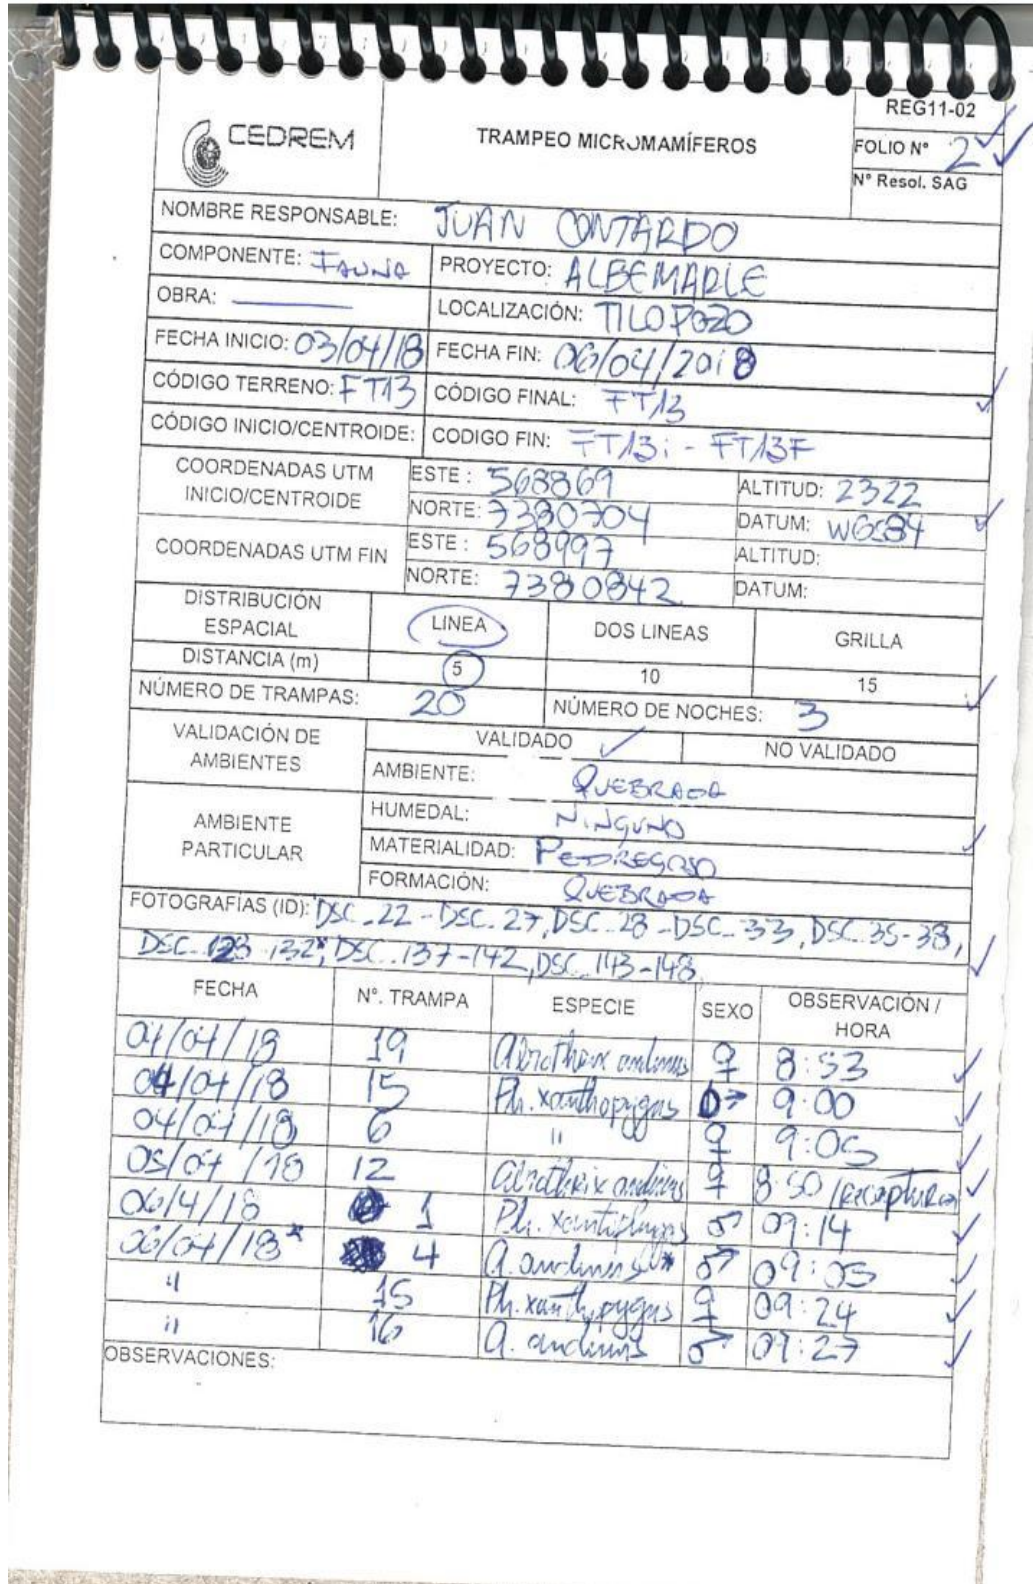 REG11-02
CEDREM
TRAMPEO MICROMAMÍFEROS
FOLIO N° 2
N° Resol. SAG
NOMBRE RESPONSABLE: JUAN CONTARDO
COMPONENTE: FAUNA PROYECTO: ALBEMARLE
OBRA: LOCALIZACIÓN: TILOPOZO
FECHA INICIO: 03/04/18 FECHA FIN: 06/04/2018
CÓDIGO TERRENO: FT13 CÓDIGO FINAL: FT13
CÓDIGO INICIO/CENTROIDE: CODIGO FIN: FT13i - FT13F
COORDENADAS UTM INICIO/CENTROIDE ESTE: 568869 ALTITUD: 2322
NORTE: 7380704 DATUM: WGS84
COORDENADAS UTM FIN ESTE: 568997 ALTITUD:
NORTE: 7380842 DATUM:
DISTRIBUCIÓN ESPACIAL LINEA DOS LINEAS GRILLA
DISTANCIA (m) 5 10 15
NÚMERO DE TRAMPAS: 20 NÚMERO DE NOCHES: 3
VALIDACIÓN DE AMBIENTES VALIDADO ✓ NO VALIDADO
AMBIENTE: QUEBRADA
AMBIENTE PARTICULAR HUMEDAL: NINGUNO
MATERIALIDAD: PEDREGOSO
FORMACIÓN: QUEBRADA
FOTOGRAFÍAS (ID): DSC_22 - DSC_27, DSC_28 - DSC_33, DSC_35-38,
DSC_123-132*, DSC_137-142, DSC_143-148,
FECHA N°. TRAMPA ESPECIE SEXO OBSERVACIÓN / HORA
04/04/18 19 Abrothrix andinus ♀ 8:53
04/04/18 15 Ph. xanthopygus ♂ 9:00
04/04/18 6 " ♀ 9:05
05/04/18 12 Abrothrix andinus ♀ 8:50 /recaptura
06/4/18 1 Ph. xantopygus ♂ 09:14
06/04/18* 4 A. andinus * ♂ 09:05
" 15 Ph. xanthopygus ♀ 09:24
" 16 A. andinus ♂ 09:27
OBSERVACIONES: